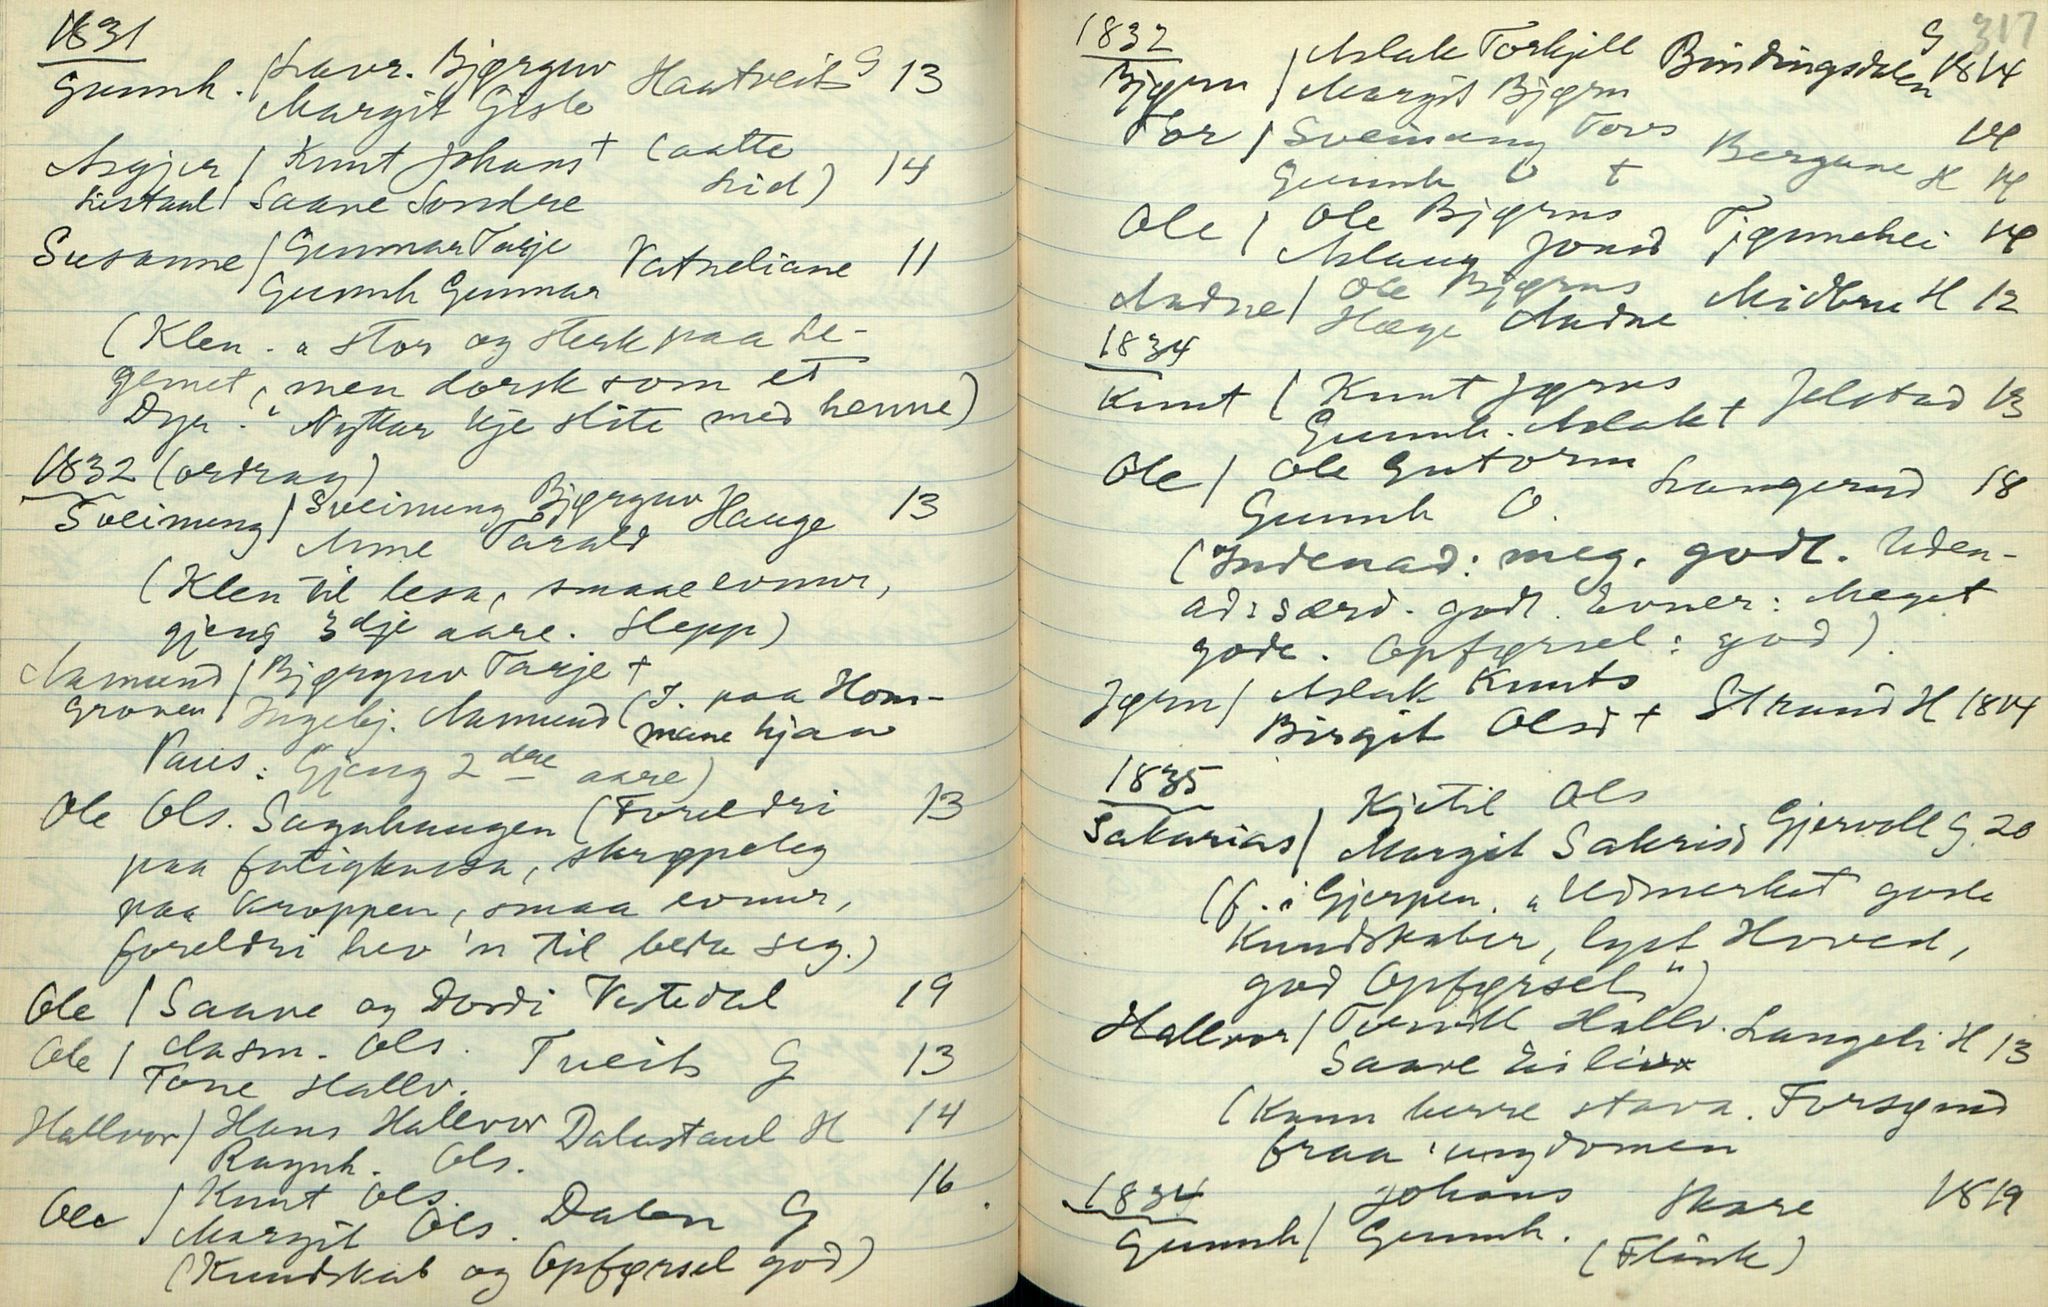 1831
Gunnh. / Havr. Bjørguv Haatveit G 13
Margit Gisle
Asgjer / Knut Johans + (aatte 14
Listaul / Saave Sondre Lid)
Susanne / Gunnar Tarje Vatneliane 11
Gunnh Gunnar
(Klen. "stor og sterk paa Le-
gemet, men dorsk som et
Dyr." Nyttar ikje slite med henne)
1832 (ordrag)
Sveinung / Sveinung Bjørguv Hauge 13
Anne Tarald
(Klen til lesa, smaae evnur,
gjeng 3dje aare. Slepp)
Aamund / Bjørguv Tarje +
Groven / Ingebj. Aamund (I. paa Hom-
mane hjaa
Vaus: Gjeng 2dre aare)
Ole Ols. Sagahaugen (Foreldri 13
paa fatigkassa, skrøpeleg
paa kroppen, smaa evnur,
foreldri hev 'n til beda seg.)
Ole / Saave og Dordi Vistedal 19
Ole / Aasm. Ols. Tveit G 13
Tone Hallv.
Hallvor / Hans Hallvor Dalastaul H 14
Ragnh. Ols.
Ole / Knut Ols. Dalen G 16
Margit Ols.
(Kundskab og Opførsel god)
317
1832
Bjørn / Aslak Torkjell Bindingsdalen G 1814
Margit Bjørn
Tor / Sveinung Tovs Bergane H 14
Gunnh O +
Ole / Ole Bjørns Tjønnehei 14
Aslaug Jonsd
Aadne / Ole Bjørns Midbru H 12
Hæge Aadne
1834
Knut / Knut Jørns Jelstad 13
Gunnh. Aslak +
Ole / Ole Gutorm Langerud 18
Gunnh O.
(Indenad: meg. godt. Uden-
ad: særd. godt. Evner: Meget
gode. Opførsel: god).
Jørn / Aslak Knuts Strand H 1814
Birgit Olsd +
1835
Sakarias / Kjetil Ols Gjervoll G. 20
Margit Sakrisd
(f. i Gjerpen. "Udmerket gode
Kundskaber, lyst Hoved,
god Opførsel")
Hallvor / Hallv. Langeli H 13
Saave Eiliv
(Kann berre stava. Forsømd
fraa ungdomen
1834
Gunnh / Johans Skare 1819
Gunnh. (Flink)